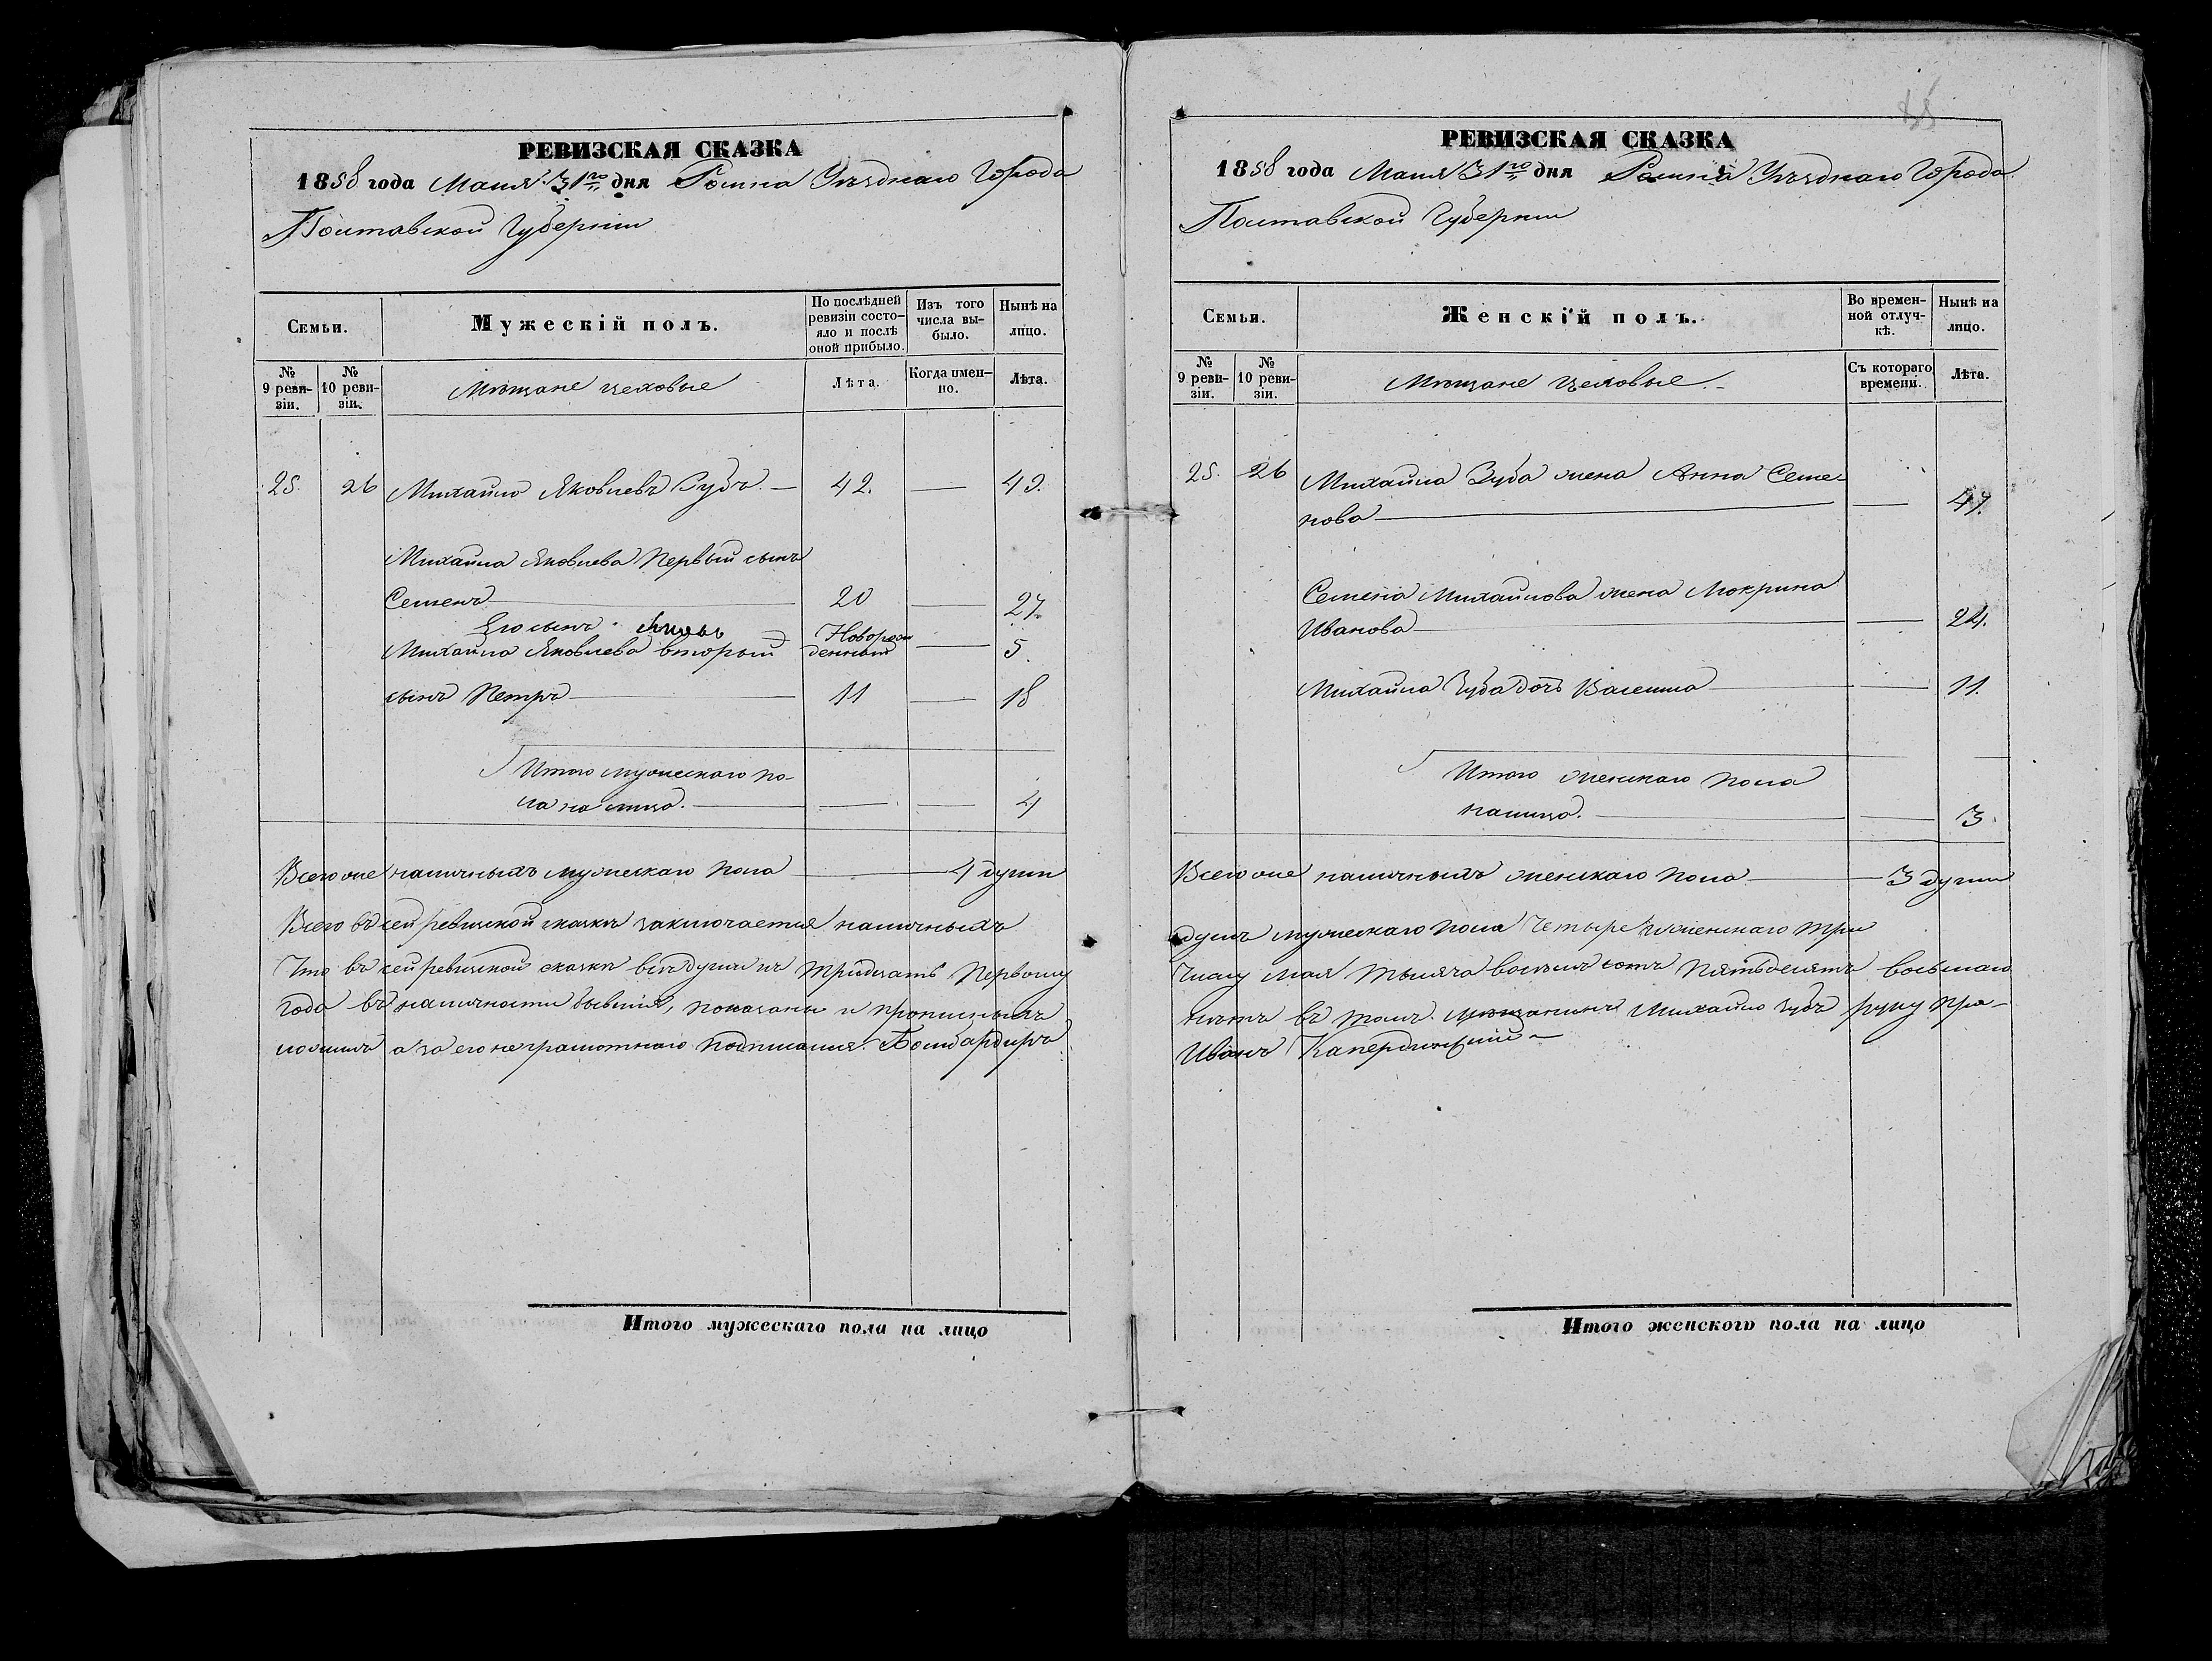 РЕВИЗСКАЯ СКАЗКА
1858 года Маия 31го дня Ромна Уѣзднаго Города
Полтавской Губерніи
Семьи.
Мужескій полъ.
По послѣдней ревизіи состояло и послѣ оной прибыло.
Изъ того числа выбыло.
Нынѣ на лицо.
№ 9 ревизіи.
№ 10 ревизіи.
Мѣщане цеховые
Лѣта.
Когда именно.
Лѣта.
25. 26 Михайло Яковлевъ Зубъ — 42. — 49.
Михайла Яковлева Первый сынъ
Семенъ — 20 — 27.
Его сынъ Яковъ Новорож
Михайла Яковлева второый денный — 5.
сынъ Петръ — 11 — 18
Итого мужескаго по-
ла на лицо. — — — 4
Всего же наличныхъ мужескаго пола — 4 души
Всего въ сей ревизской сказкѣ заключается наличныхъ
Что въ сей ревизской сказкѣ всѣ души къ тридцать Первому
года въ наличности бывшія, показаны и прописныхъ
ложилъ а за его неграмотнаго подписался. Бомбардиръ
Итого мужескаго пола на лицо
РЕВИЗСКАЯ СКАЗКА
1858 года Маия 31го дня Ромна Уѣзднаго Города
Полтавской Губерніи
Семьи.
Женскій полъ.
Во временной отлучкѣ.
Нынѣ на лицо.
№ 9 ревизіи.
№ 10 ревизіи.
Мѣщане цеховые
Съ котораго времени.
Лѣта.
25. 26 Михайла Зуба жена Анна Семе-
нова — — 47.
Семена Михайлова жена Мокрина
Иванова — — 24.
Михайла Зуба дочь Васелина — — 11.
Итого женскаго пола
налицо. — — 3.
Всего же наличныхъ женскаго пола — 3 души
душъ мужескаго пола Четыре и женскаго три
Числу мая тысяча восемь сотъ пятьдесятъ восьмаго
нѣтъ въ томъ. мѣщанинъ Михайло Зубъ руку при-
Иванъ
Итого женского пола на лицо